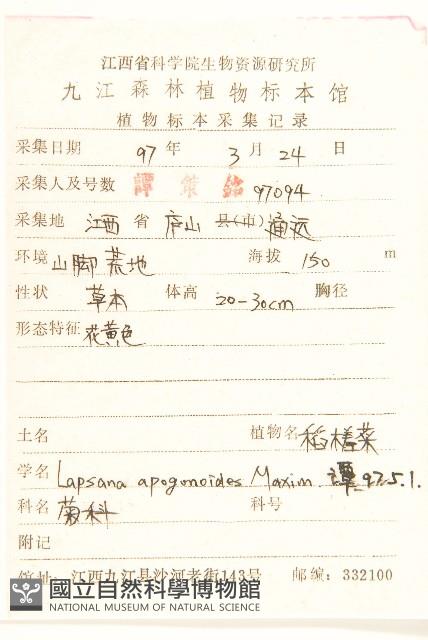 江西省科学院生物资源研究所
九江森林植物标本馆
植物标本采集记录
采集日期 97 年 3 月 24 日
采集人及号数 譚策銘 97094
采集地 江西 省 庐山 县(市) 通远
环境 山脚荒地 海拔 150 m
性状 草本 体高 20-30cm 胸径
形态特征 花黄色
土名 植物名 稻槎菜
学名 Lapsana apogonoides Maxim. 譚 97.5.1.
科名 菊科 科号
附记
馆址: 江西九江县沙河老街143号 邮编: 332100
國立自然科學博物館
NATIONAL MUSEUM OF NATURAL SCIENCE